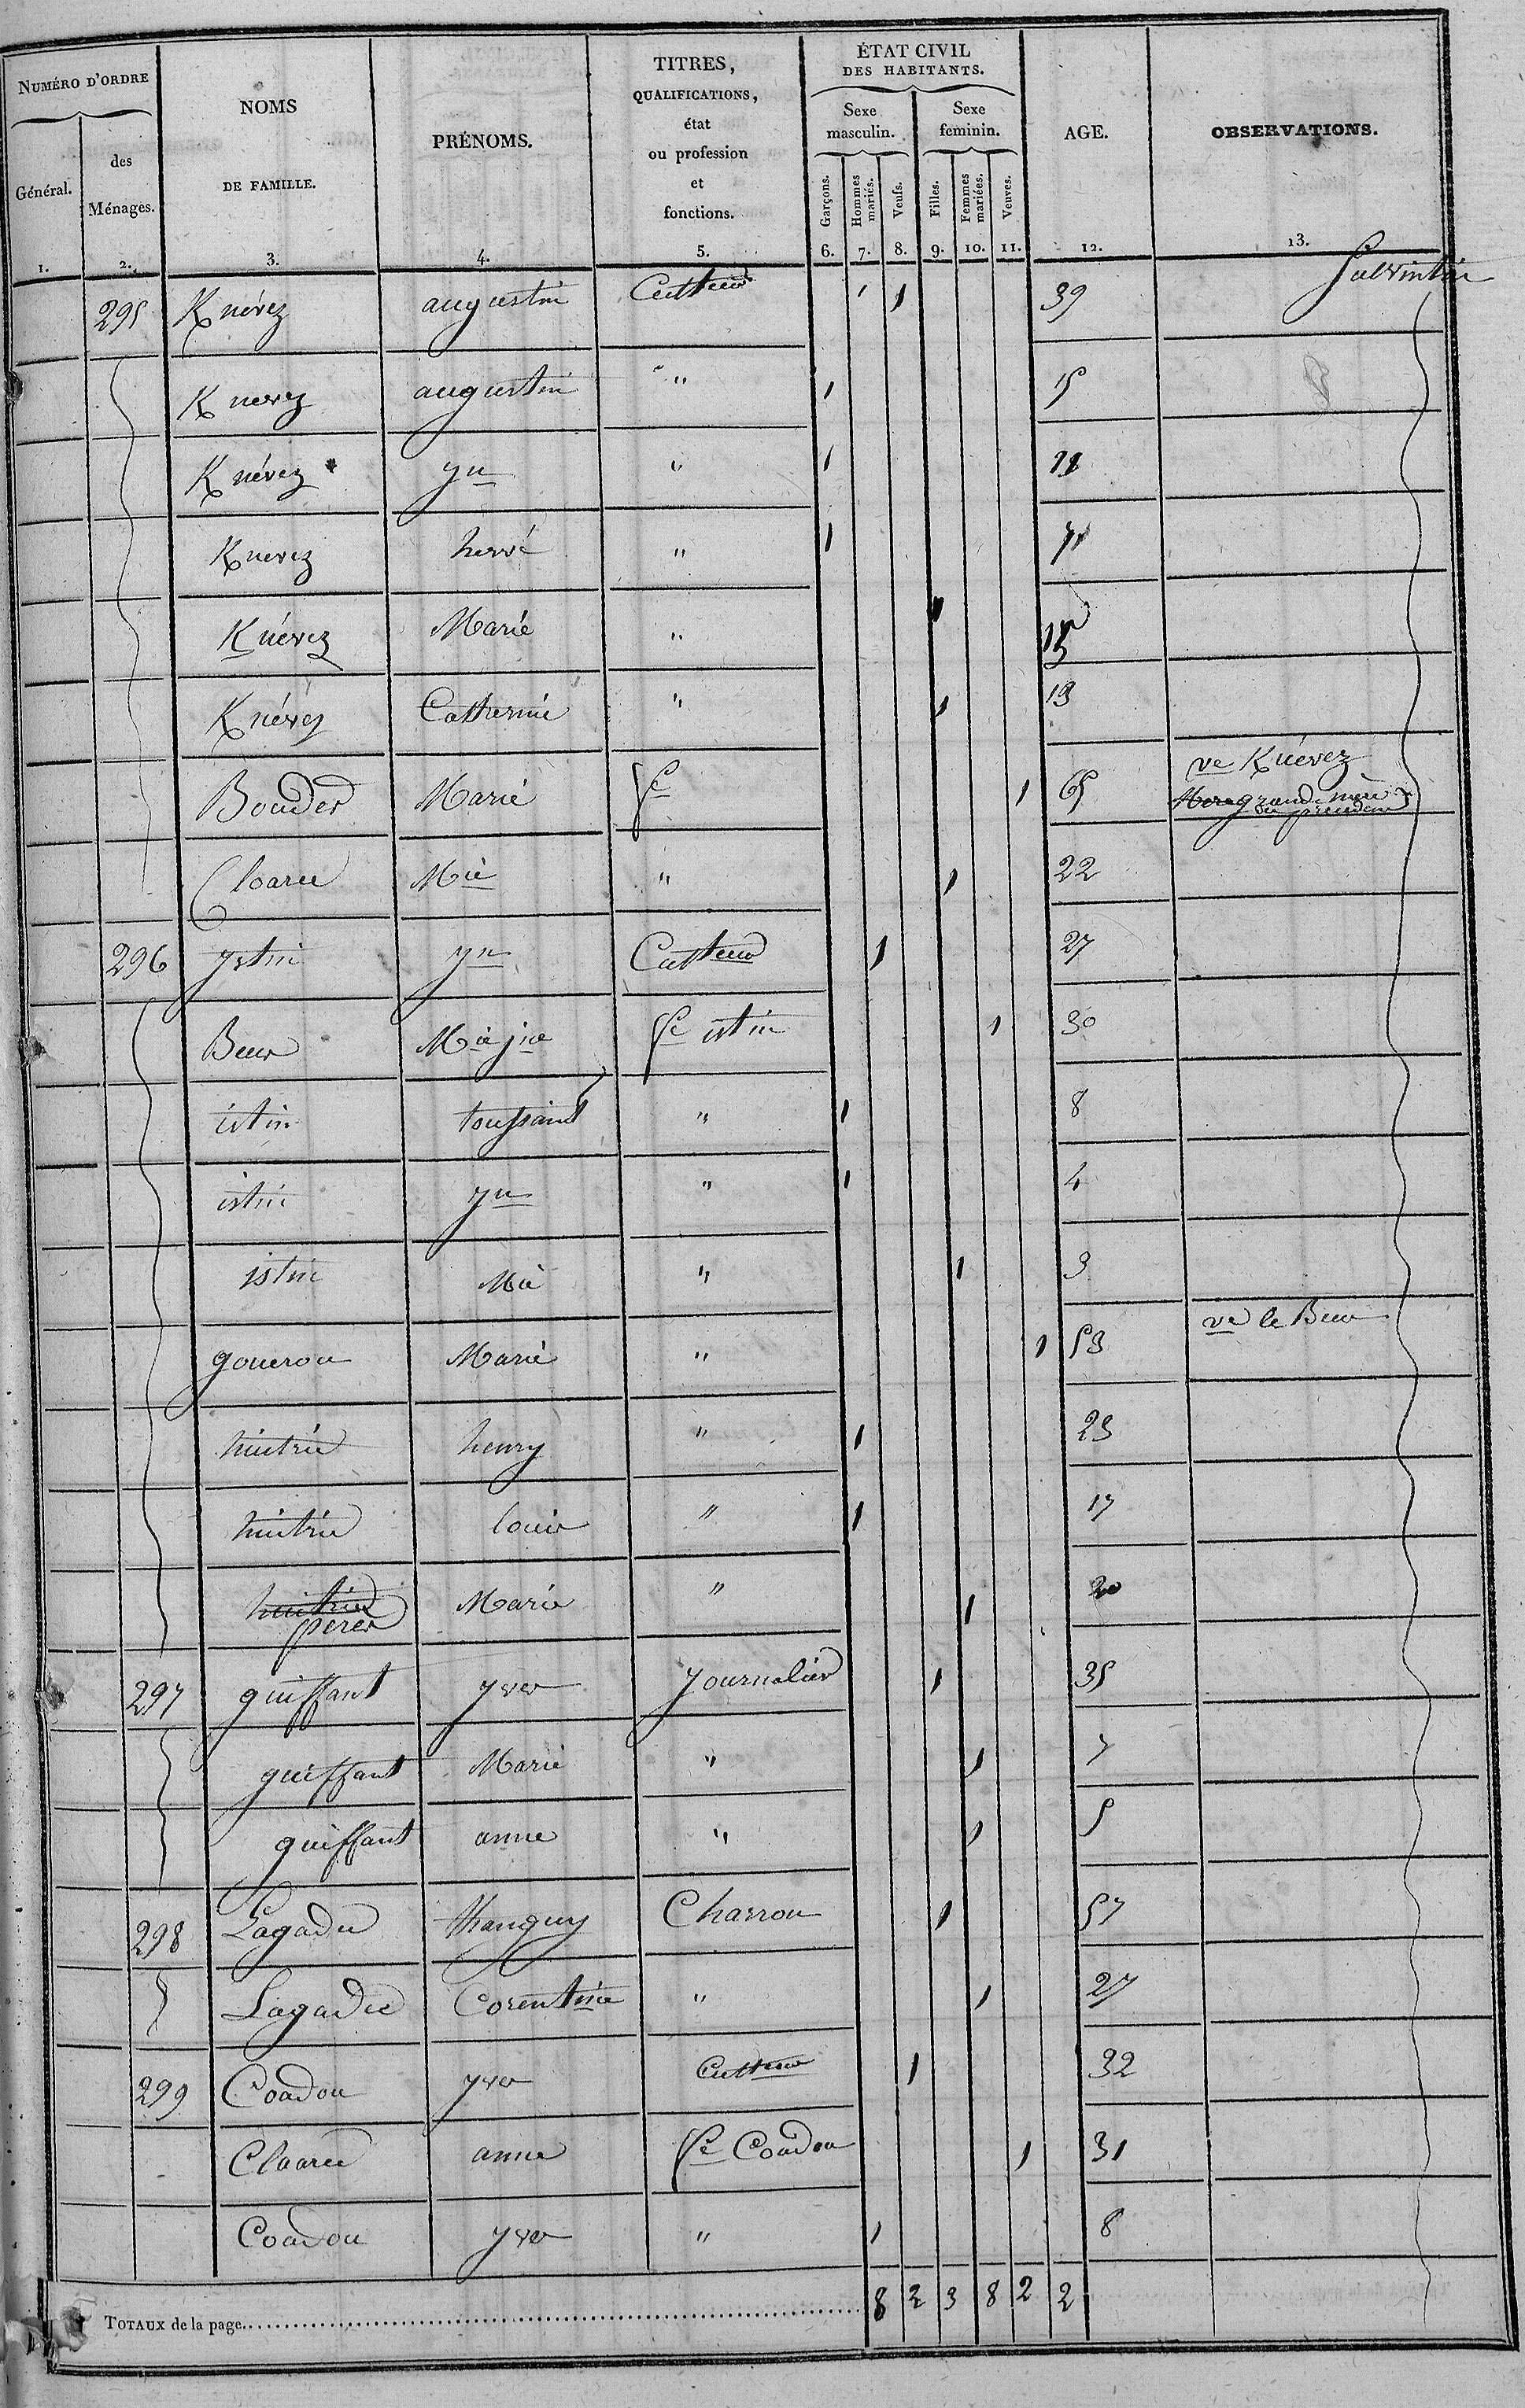 NUMÉRO D'ORDRE
Général.
des
Ménages.
NOMS
DE FAMILLE.
PRÉNOMS.
TITRES,
QUALIFICATIONS,
état
ou profession
et
fonctions.
ÉTAT CIVIL
DES HABITANTS.
Sexe
masculin.
Sexe
feminin.
Garçons.
Hommes
mariés.
Veufs.
Filles.
Femmes
mariées.
Veuves.
AGE.
OBSERVATIONS.
1. 2. 3. 4. 5. 6. 7. 8. 9. 10. 11. 12. 13.
295 Knévez augustin Cultteur 1 39
Knevez augustin " 1 15
Knévez yn " 1 11
Knevez hervé " 1
Knévez Marie " 1
Knévez Catherine " 1 13
Bouder Marie 1 65 ve Knévez
grand mère
Cloarec Mie " 1 22
296 ystin yn Cultteur 1 27
Beur Mie jne fe istin 1 30
istin toussaint " 1 8
istin yn " 1 4
istin Mie " 1 3
goueron Marie " 1 53 ve le Beur
hintric henry " 1 23
hintric louis " 1 17
perer Marie " 1 20
297 guiffant yves journalier 1 35
guiffant Marie " 1 7
guiffant anne " 1 5
298 Lagadec thanguy Charron 1 57
Lagadec Corentine " 1 27
299 Coadou yves Cultteur 1 32
Cloarec anne fe Coadou 1 31
Coadou yves " 1 8
TOTAUX de la page 8 2 3 8 2 2